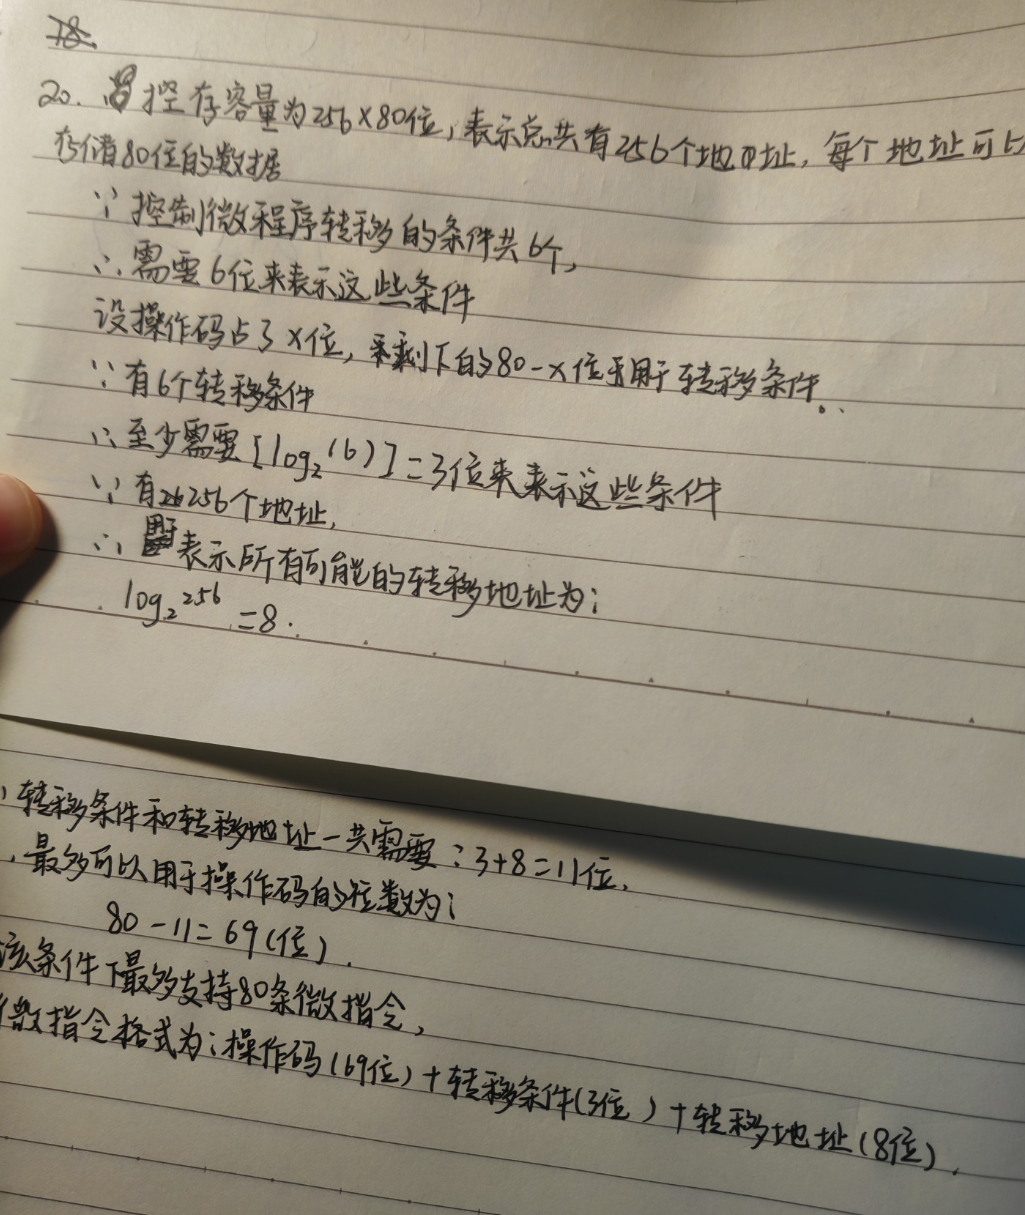 20. 控存容量为256×80位,表示总共有256个地址,每个地址可以
存储80位的数据
∵控制微程序转移的条件共6个,
∴需要6位来表示这些条件
设操作码占了x位,剩下的80-x位用于转移条件.
∵有6个转移条件
∴至少需要[log₂(6)]=3位来表示这些条件
∵有256个地址,
∴表示所有可能的转移地址为:
log₂256 =8.
转移条件和转移地址一共需要:3+8=11位.
最多可以用于操作码的位数为:
80-11=69(位).
该条件下最多支持80条微指令,
微指令格式为:操作码(69位)+转移条件(3位)+转移地址(8位).